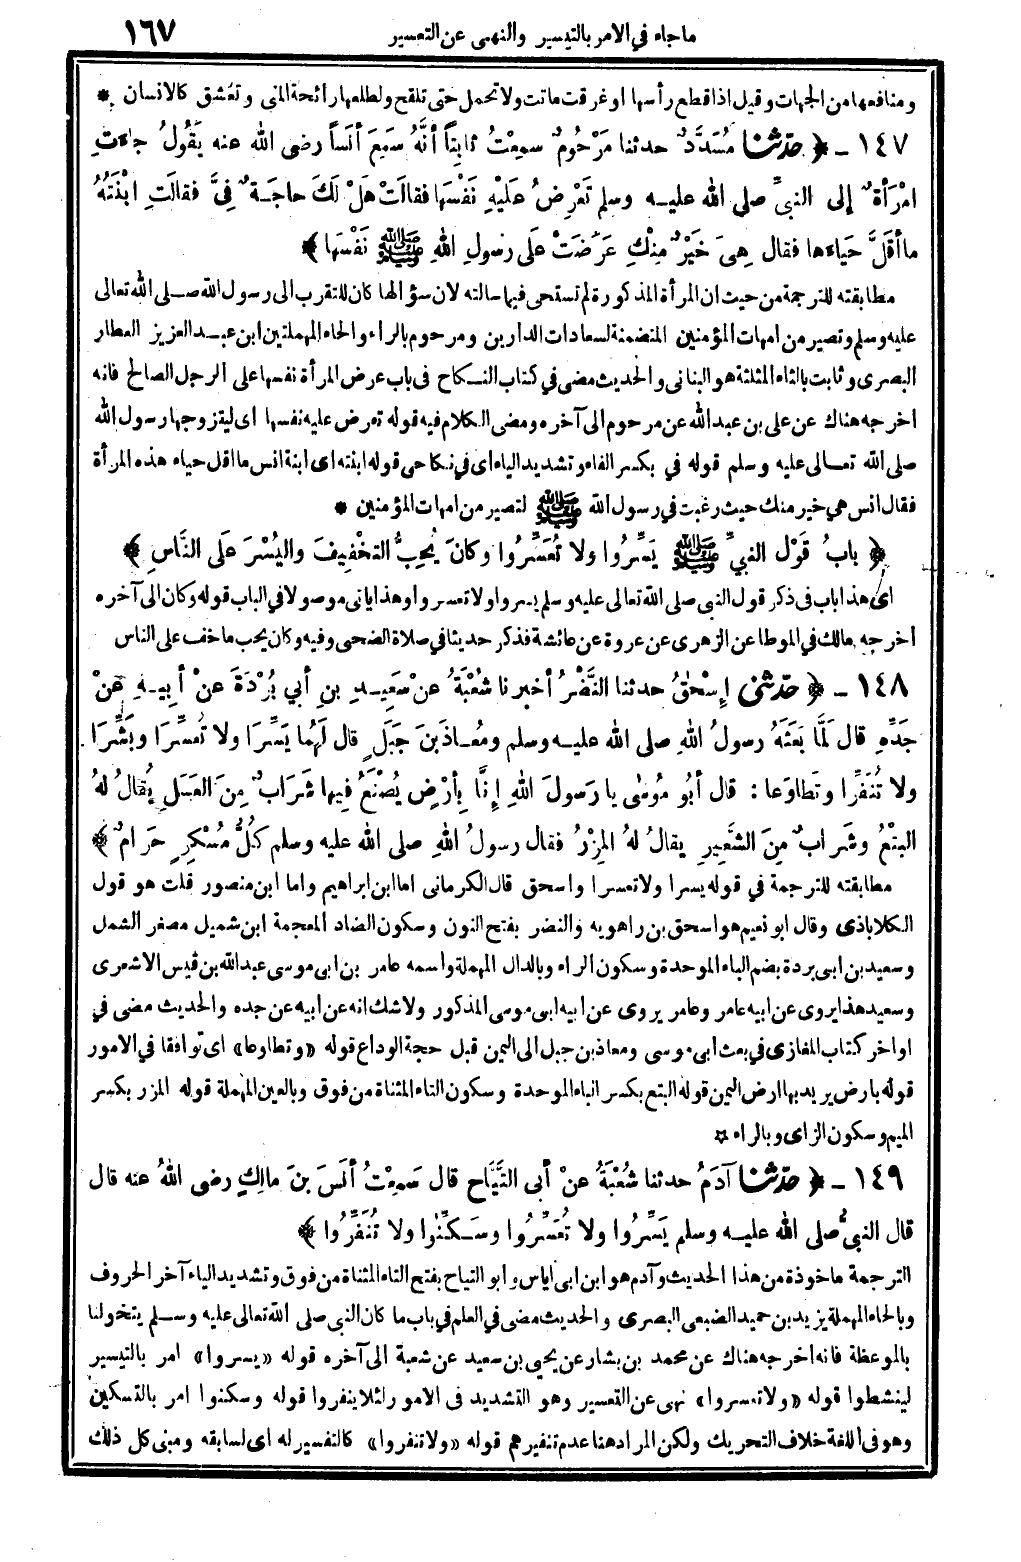 ما جاء في الامر بالتيسير والنهى عن التعسير ١٦٧
ومنافعها من الجهات وقيل اذا قطع رأسها او غرقت ماتت ولا تحمل حتى تلقح ولطلعها رائحة المنى وتعشق كالانسان *
١٤٧ ـ ﴿ حدّثنا مُسَدَّدٌ حدثنا مَرْحُومٌ سمِعْتُ ثابِتاً أنَّهُ سَمِعَ أنَساً رضى الله عنه يَقُولُ جاءَتِ
امْرَأةٌ إلى النبىِّ صلى الله عليه وسلم تَعْرِضُ عَلَيْهِ نَفْسَها فقالَتْ هَلْ لَكَ حاجَةٌ فِىَّ فقالَتِ ابْنَتُهُ
ما أقَلَّ حَياءَها فقال هِىَ خَيْرٌ مِنْكِ عَرَضَتْ عَلَى رسولِ اللهِ ﷺ نَفْسَها ﴾
مطابقته للترجمة من حيث ان المرأة المذكورة لم تستحى فيما سالته لان سؤالها كان للتقرب الى رسول الله صلى الله تعالى
عليه وسلم وتصير من امهات المؤمنين المتضمنة لسعادات الدارين ومرحوم بالراء والحاء المهملتين ابن عبد العزيز العطار
البصرى وثابت بالثاء المثلثة هو البنانى والحديث مضى في كتاب النكاح فى باب عرض المرأة نفسها على الرجل الصالح فانه
اخرجه هناك عن على بن عبد الله عن مرحوم الى آخره ومضى الكلام فيه قوله تعرض عليه نفسها اى ليتزوجها رسول الله
صلى الله تعالى عليه وسلم قوله في بكسر الفاء وتشديد الياء اى في نكاحى قوله ابنته اى ابنة انس ما اقل حياء هذه المرأة
فقال انس هي خير منك حيث رغبت في رسول الله ﷺ لتصير من امهات المؤمنين *
﴿ بابُ قَوْلِ النبيِّ ﷺ يَسِّرُوا ولا تُعَسِّرُوا وكانَ يُحِبُّ التخْفِيفَ واليُسْرَ عَلَى النَّاسِ ﴾
اى هذا باب فى ذكر قول النبى صلى الله تعالى عليه وسلم يسروا ولا تعسروا وهذا ياتى موصولا في الباب قوله وكان الى آخره
أخرجه مالك في الموطا عن الزهرى عن عروة عن عائشة فذكر حديثا في صلاة الضحى وفيه وكان يحب ما خف على الناس
١٤٨ ـ ﴿ حدّثنى إسْحقُ حدثنا النَّضْرُ أخبرنا شُعْبَةُ عنْ سَعِيدِ بنِ أبي بُرْدَةَ عنْ أبِيهِ عنْ
جَدِّهِ قال لَمَّا بَعَثَهُ رسولُ اللهِ صلى الله عليه وسلم ومُعاذَ بنَ جَبَلٍ قال لَهُما يَسِّرَا ولا تُعَسِّرَا وبَشِّرَا
ولا تُنَفِّرَا وتَطاوَعا : قال أبُو مُوسٰى يا رسولَ اللهِ إنَّا بِأرْضٍ يُصْنَعُ فِيها شَرَابٌ مِنَ العَسَلِ يُقالُ لهُ
البِتْعُ وشَرابٌ مِنَ الشَّعِيرِ يقالُ لهُ المِزْرُ فقال رسولُ اللهِ صلى الله عليه وسلم كلُّ مُسْكِرٍ حَرامٌ ﴾
مطابقته للترجمة في قوله يسرا ولا تعسرا واسحق قال الكرمانى اما ابن ابراهيم واما ابن منصور قلت هو قول
الكلاباذى وقال ابو نعيم هو اسحق بن راهويه والنضر بفتح النون وسكون الضاد المعجمة ابن شميل مصغر الشمل
وسعيد بن ابى بردة بضم الباء الموحدة وسكون الراء وبالدال المهملة واسمه عامر بن ابى موسى عبد الله بن قيس الاشعرى
وسعيد هذا يروى عن ابيه عامر وعامر يروى عن ابيه ابى موسى المذكور ولا شك انه عن ابيه عن جده والحديث مضى في
اواخر كتاب المغازى في بعث ابى موسى ومعاذ بن جبل الى اليمن قبل حجة الوداع قوله «وتطاوعا» اى توافقا في الامور
قوله بارض يريد بها ارض اليمن قوله البتع بكسر الباء الموحدة وسكون التاء المثناة من فوق وبالعين المهملة قوله المزر بكسر
الميم وسكون الزاى وبالراء *
١٤٩ ـ ﴿ حدّثنا آدَمُ حدثنا شُعْبَةُ عنْ أبى التَّيَّاحِ قال سَمِعْتُ أنَسَ بنَ مالِكٍ رضى اللهُ عنه قال
قال النبىُّ صلى الله عليه وسلم يَسِّرُوا ولا تُعَسِّرُوا وسَكِّنُوا ولا تُنَفِّرُوا ﴾
الترجمة ماخوذة من هذا الحديث وآدم هو ابن ابى اياس وابو التياح بفتح التاء المثناة من فوق وتشديد الياء آخر الحروف
وبالحاء المهملة يزيد بن حميد الضبعى البصرى والحديث مضى في العلم في باب ما كان النبى صلى الله تعالى عليه وسلم يتخولنا
بالموعظة فانه اخرجه هناك عن محمد بن بشار عن يحيى بن سعيد عن شعبة الى آخره قوله «يسروا» امر بالتيسير
لينشطوا قوله «ولا تعسروا» نهى عن التعسير وهو التشديد فى الامور لئلا ينفروا قوله وسكنوا امر بالتسكين
وهو فى اللغة خلاف التحريك ولكن المراد هنا عدم تنفيرهم قوله «ولا تنفروا» كالتفسير له اى لسابقه ومبنى كل ذلك